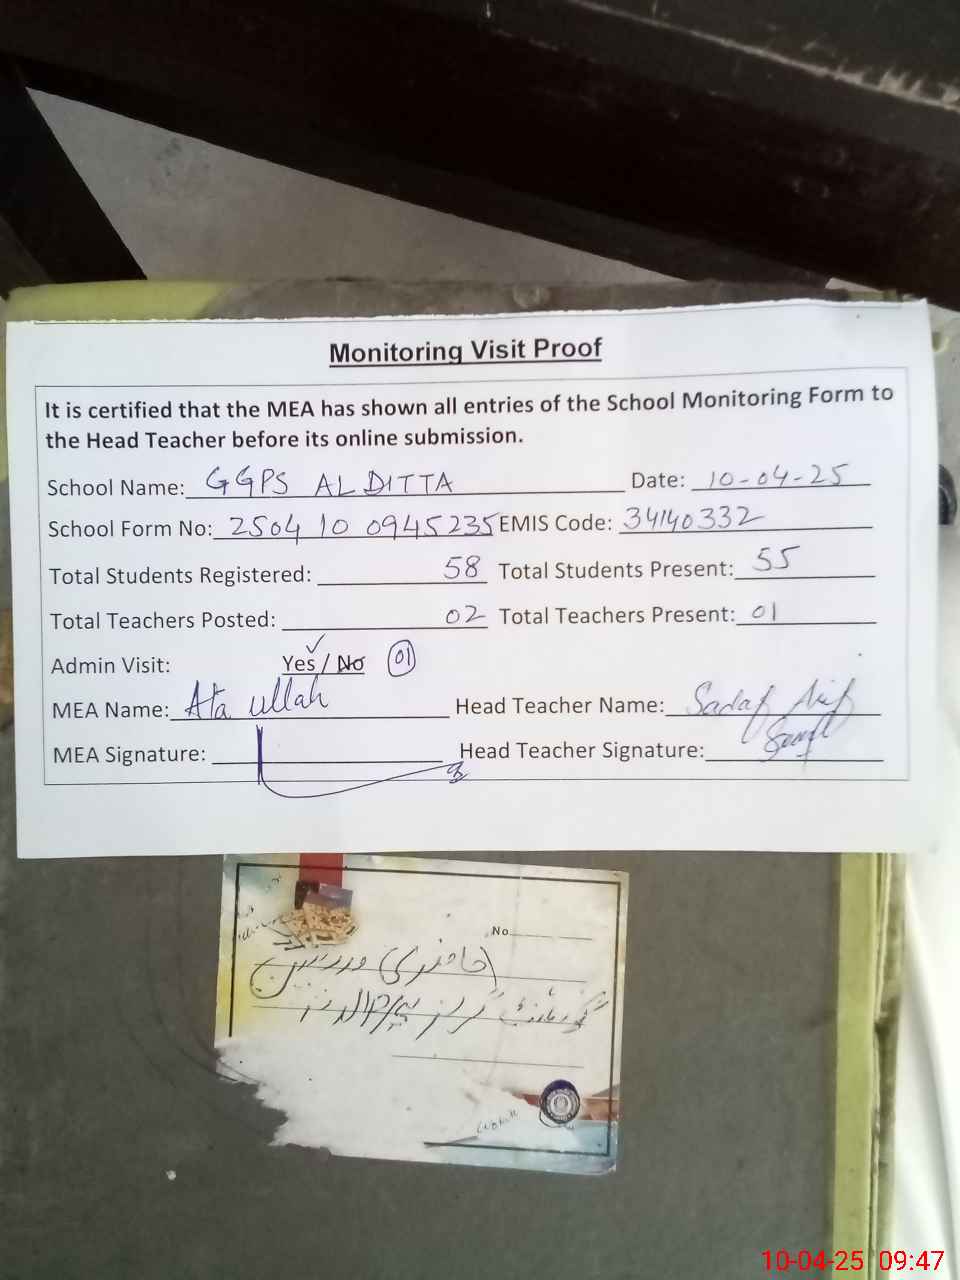 Monitoring Visit Proof
It is certified that the MEA has shown all entries of the School Monitoring Form to
the Head Teacher before its online submission.
School Name: GGPS AL DITTA Date: 10-04-25
School Form No: 2504 10 0945235 EMIS Code: 34140332
Total Students Registered: 58 Total Students Present: 55
Total Teachers Posted: 02 Total Teachers Present: 01
Admin Visit: Yes / No 01
MEA Name: Ata ullah Head Teacher Name: Sadaf Arif
MEA Signature: Head Teacher Signature:
No
حاضری مدرسین
گورنمنٹ گرلز
10-04-25 09:47